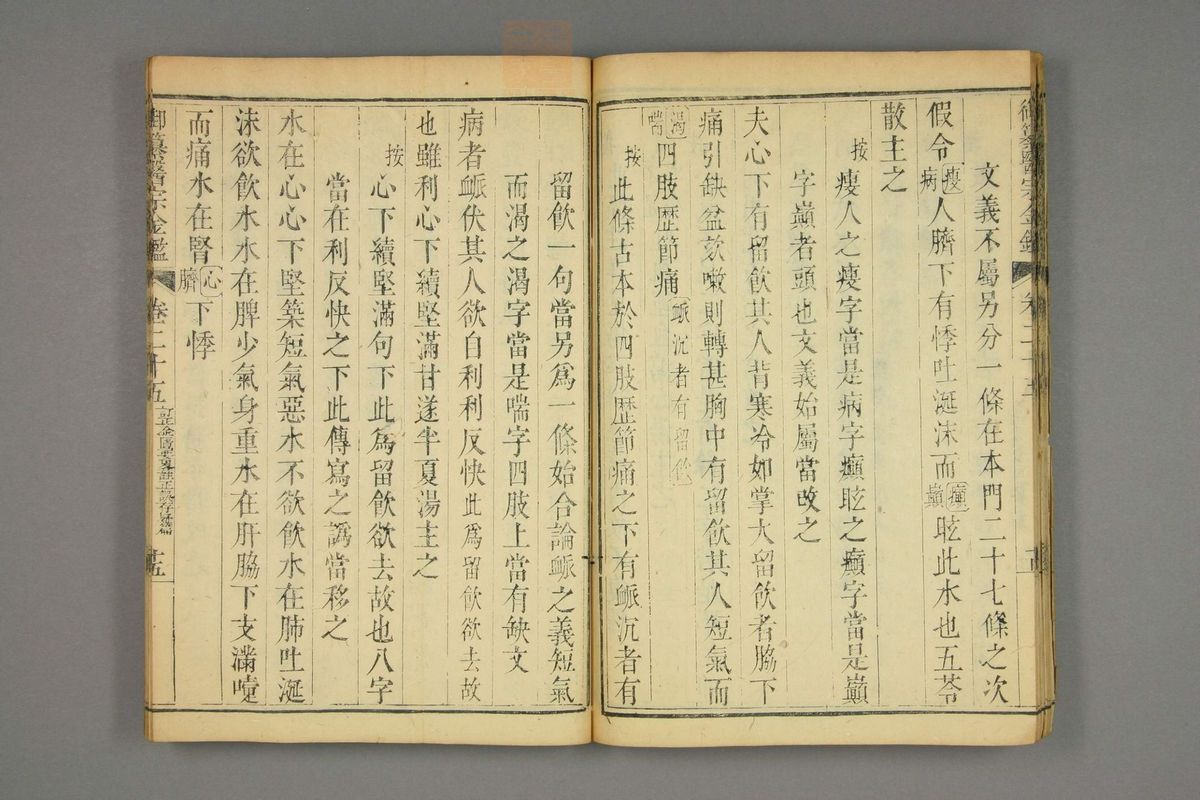 御纂醫宗金鑑 卷二十五
文義不屬另分一條在本門二十七條之次
假令瘦病人臍下有悸吐涎沫而癲巔眩此水也五苓
散主之
按瘦人之瘦字當是病字癲眩之癲字當是巔
字巔者頭也文義始屬當改之
夫心下有留飲其人背寒冷如掌大留飲者脇下
痛引缺盆欬嗽則轉甚胸中有留飲其人短氣而
渴喘四肢歷節痛脈沉者有留飲
按此條古本於四肢歷節痛之下有脈沉者有
留飲一句當另爲一條始合論脈之義短氣
而渴之渴字當是喘字四肢上當有缺文
病者脈伏其人欲自利利反快此爲留飲欲去故
也雖利心下續堅滿甘遂半夏湯主之
按心下續堅滿句下此爲留飲欲去故也八字
當在利反快之下此傳寫之譌當移之
水在心心下堅築短氣惡水不欲飲水在肺吐涎
沫欲飲水水在脾少氣身重水在肝脇下支滿嚏
而痛水在腎心臍下悸
御纂醫宗金鑑 卷二十五 訂正金匱要畧註正誤存疑篇 十五